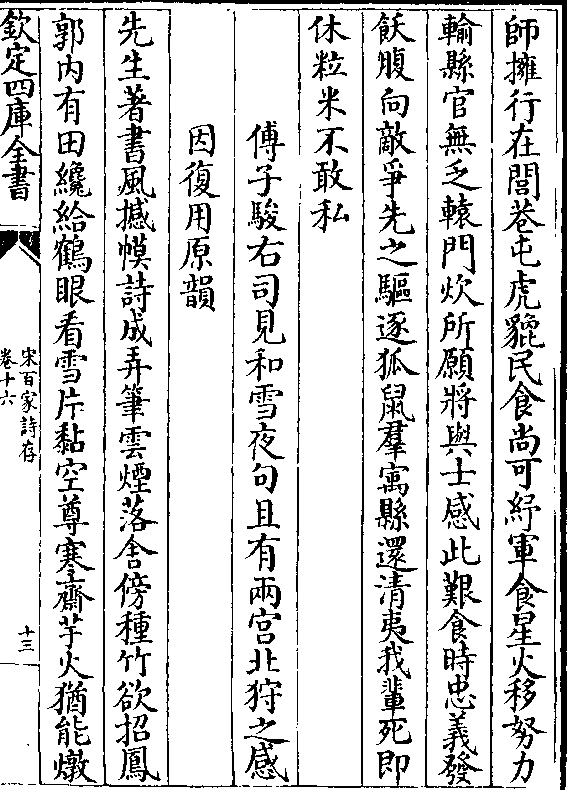 師擁行在閭巷屯虎貔民食尚可紓軍食星火移努力
輸縣官無乏轅門炊所願將與士感此艱食時忠義發
飫腹向敵爭先之驅逐狐鼠羣寓縣還清夷我輩死即
休粒米不敢私
傅子駿右司見和雪夜句且有兩宫北狩之感
因復用原韻
先生著書風撼幙詩成弄筆雲煙落舍傍種竹欲招鳳
郭內有田纔給鶴眼看雪片黏空尊寒齋芋火猶能燉
欽定四庫全書
宋百家詩存
卷十六
十三